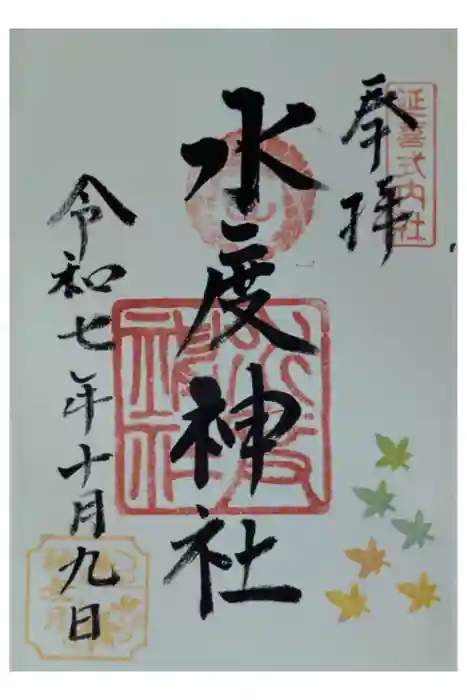 延喜式内社
奉拝
水度神社
水度神社
令和七年十月九日